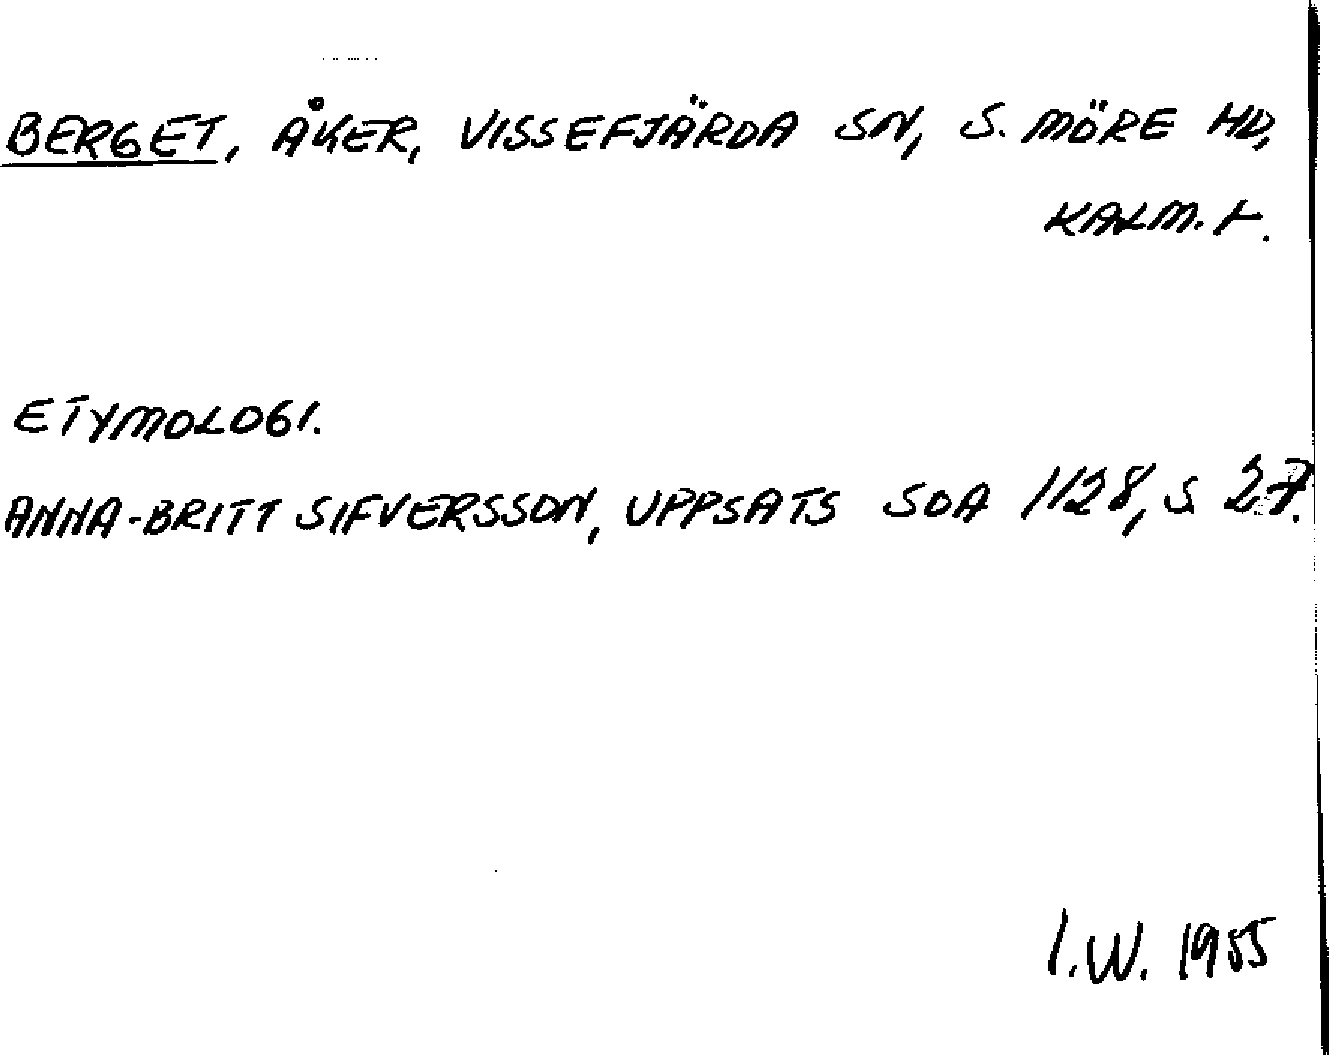 BERGET, ÅKER, VISSEFJÄRDA SN, S. MÖRE HD,
KALM. L.
ETYMOLOGI.
ANNA-BRITT SIFVERSSON, UPPSATS SOA 1128, S 27.
I.W. 1955